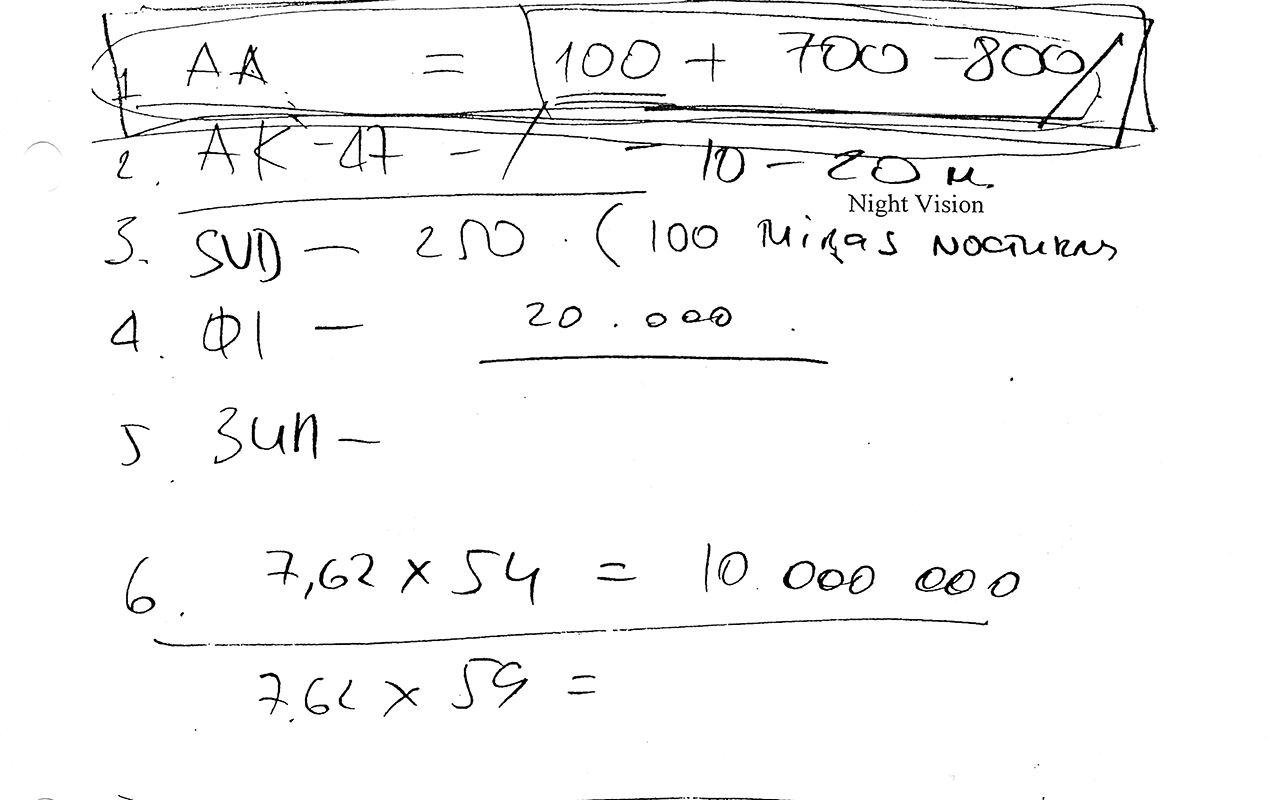 1. AA = 100 + 700 - 800
2. AK-47 - / - 10 - 20 м.
Night Vision
3. SVD - 250. (100 Miras Nocturnas
4. Ф1 - 20.000.
5. ЗИП -
6. 7,62 x 54 = 10.000 000
7.62 x 54 =